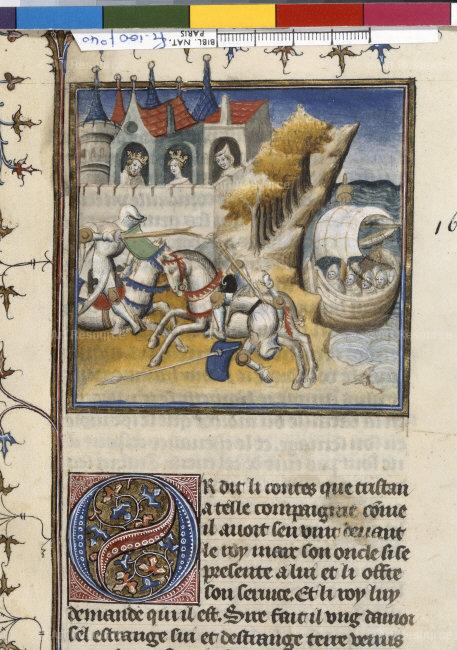 BIBL. NAT.
PARIS
fr. 100 fº 40
16
OR dit li contes que tristan
a telle compaignie côme
il auoit sen vint deuant
le roy marc son oncle si se
presente a lui et li offre
son seruice. Et li roy luy
demande qui il est. Sire fait il vng damoi
sel estrange sui et destrange terre venus